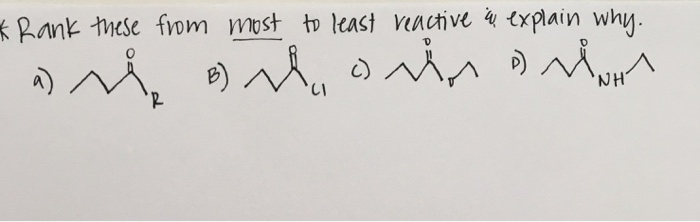 * Rank these from most to least reactive & explain why.
a) O R B) O Cl c) O O D) O NH